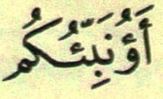 أَؤُنَبِّئُكُم